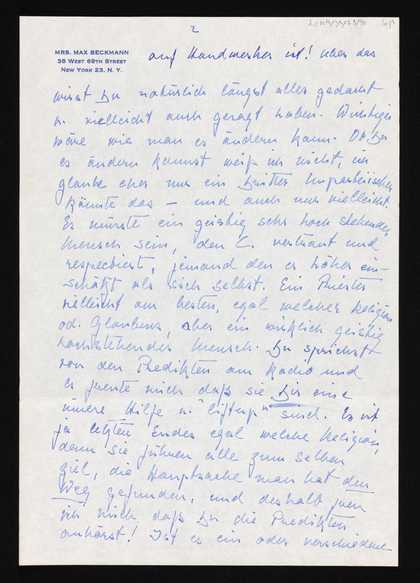 2
MRS. MAX BECKMANN
38 WEST 69TH STREET
NEW YORK 23, N. Y.
auf Handwerker ist! Über das
wirst Du natürlich längst alles gedacht
u. vielleicht auch gesagt haben. Wichtiger
wäre wie man es ändern kann. Ob Du
es ändern kannst weiß ich nicht, ich
glaube eher nur ein Dritter Unparteiischer
könnte das – und auch nur vielleicht.
Es müsste ein geistig sehr hoch stehender
Mensch sein, dem E. vertraut und
respectiert, jemand den er höher ein-
schätzt als sich selbst. Ein Priester
vielleicht am besten, egal welcher Religion
od. Glaubens, aber ein wirklich geistig
hochstehender Mensch. Du sprichst
von den Predikten am Radio und
es freute mich daß sie Dir eine
innere Hilfe u. "lift up" sind. Es ist
ja letzten Endes egal welche Religion,
denn sie führen alle zum selben
Ziel, die Hauptsache man hat den
Weg gefunden, und deshalb freu
ich mich daß Du die Predikten
anhörst! Ist es ein oder verschiedene